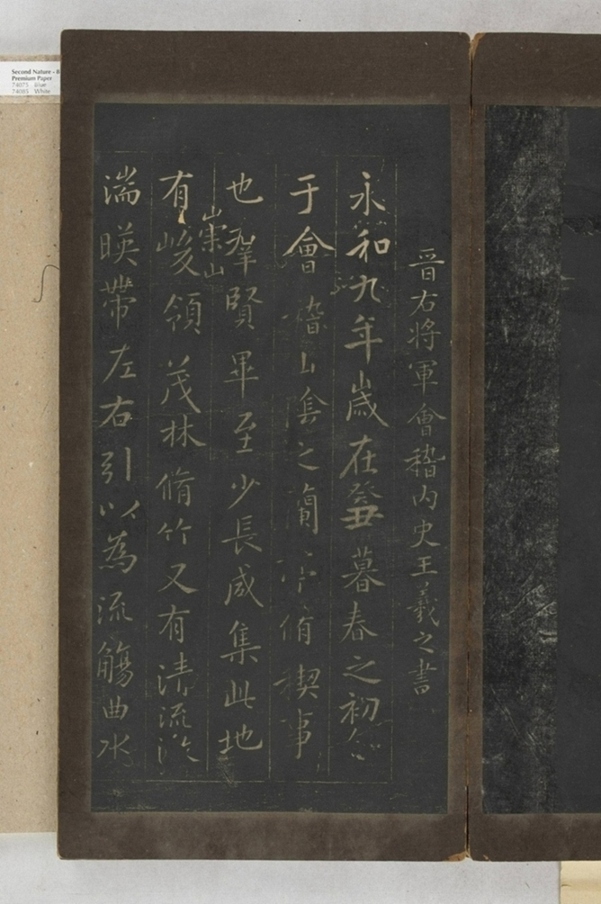 晉右将軍會稽内史王羲之書
永和九年歲在癸丑暮春之初會
于會稽山陰之蘭亭脩稧事
也羣賢畢至少長咸集此地
有崇山峻領茂林脩竹又有清流激
湍暎帶左右引以為流觴曲水
Second Nature -
Premium Paper
74071 Blue
74085 White